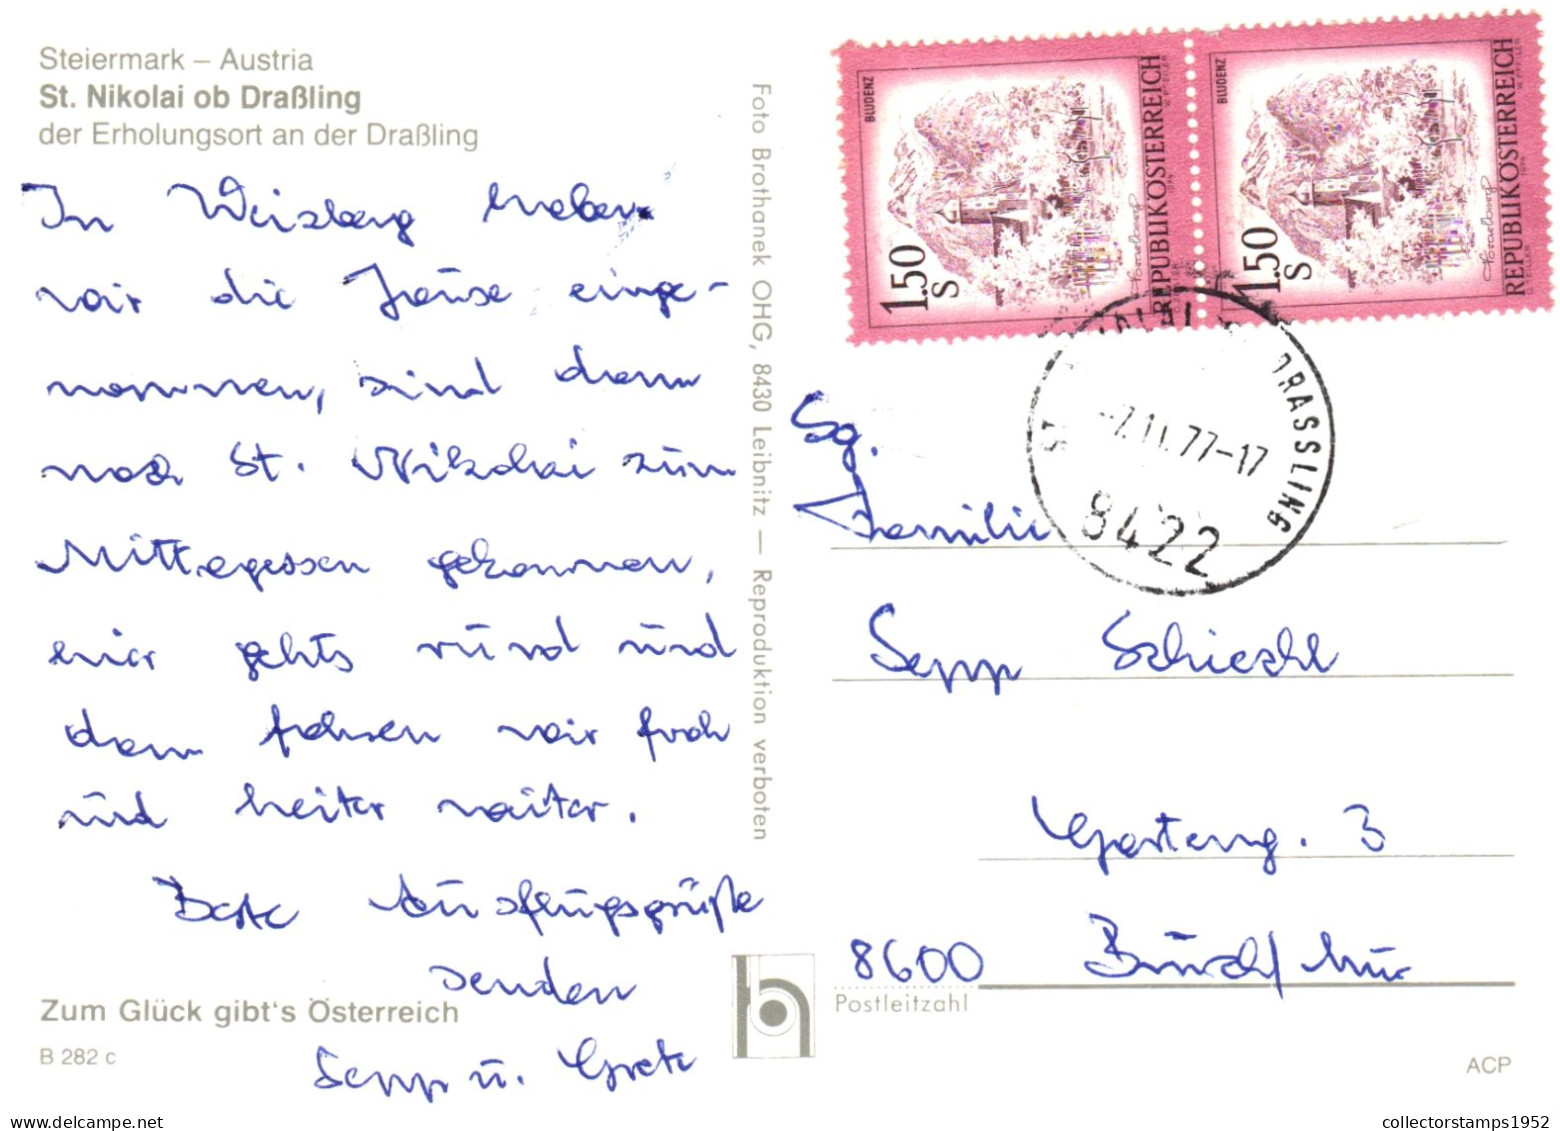 Steiermark – Austria
St. Nikolai ob Draßling
der Erholungsort an der Draßling
In Weizberg haben
wir die Jause einge-
nommen, sind dann
nach St. Nikolai zum
Mittagessen gekommen,
hier gehts rund und
dann fahren wir froh
und heiter weiter.
Beste Ausflugsgrüße
senden
Sepp u. Grete
Zum Glück gibt's Österreich
B 282 c
Foto Brothanek OHG, 8430 Leibnitz — Reproduktion verboten
BLUDENZ
1.50
S
REPUBLIK ÖSTERREICH
BLUDENZ
1.50
S
REPUBLIK ÖSTERREICH
DRASSLING
77-17
8422
Sg.
Familie
Sepp Schieshl
Garteng. 3
8600 Bruck/Mur
Postleitzahl
ACP
collectorstamps1952